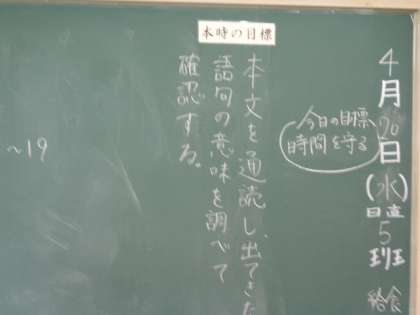 本時の目標
4月20日(水)
日直
5班
給食
今日の目標
時間を守る
本文を通読し、出てきた
語句の意味を調べて
確認する。
～19